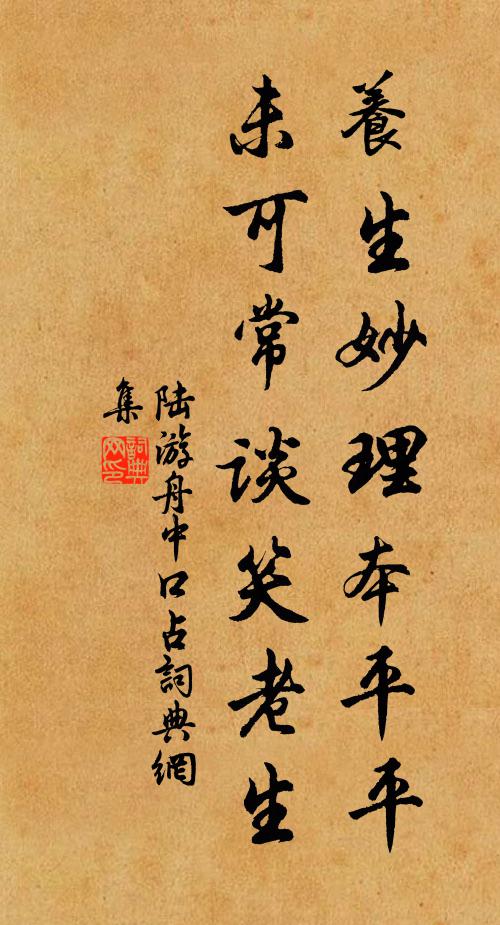 養生妙理本平平
未可常談笑老生
陆游舟中口占詞典網
集
詞典
网印